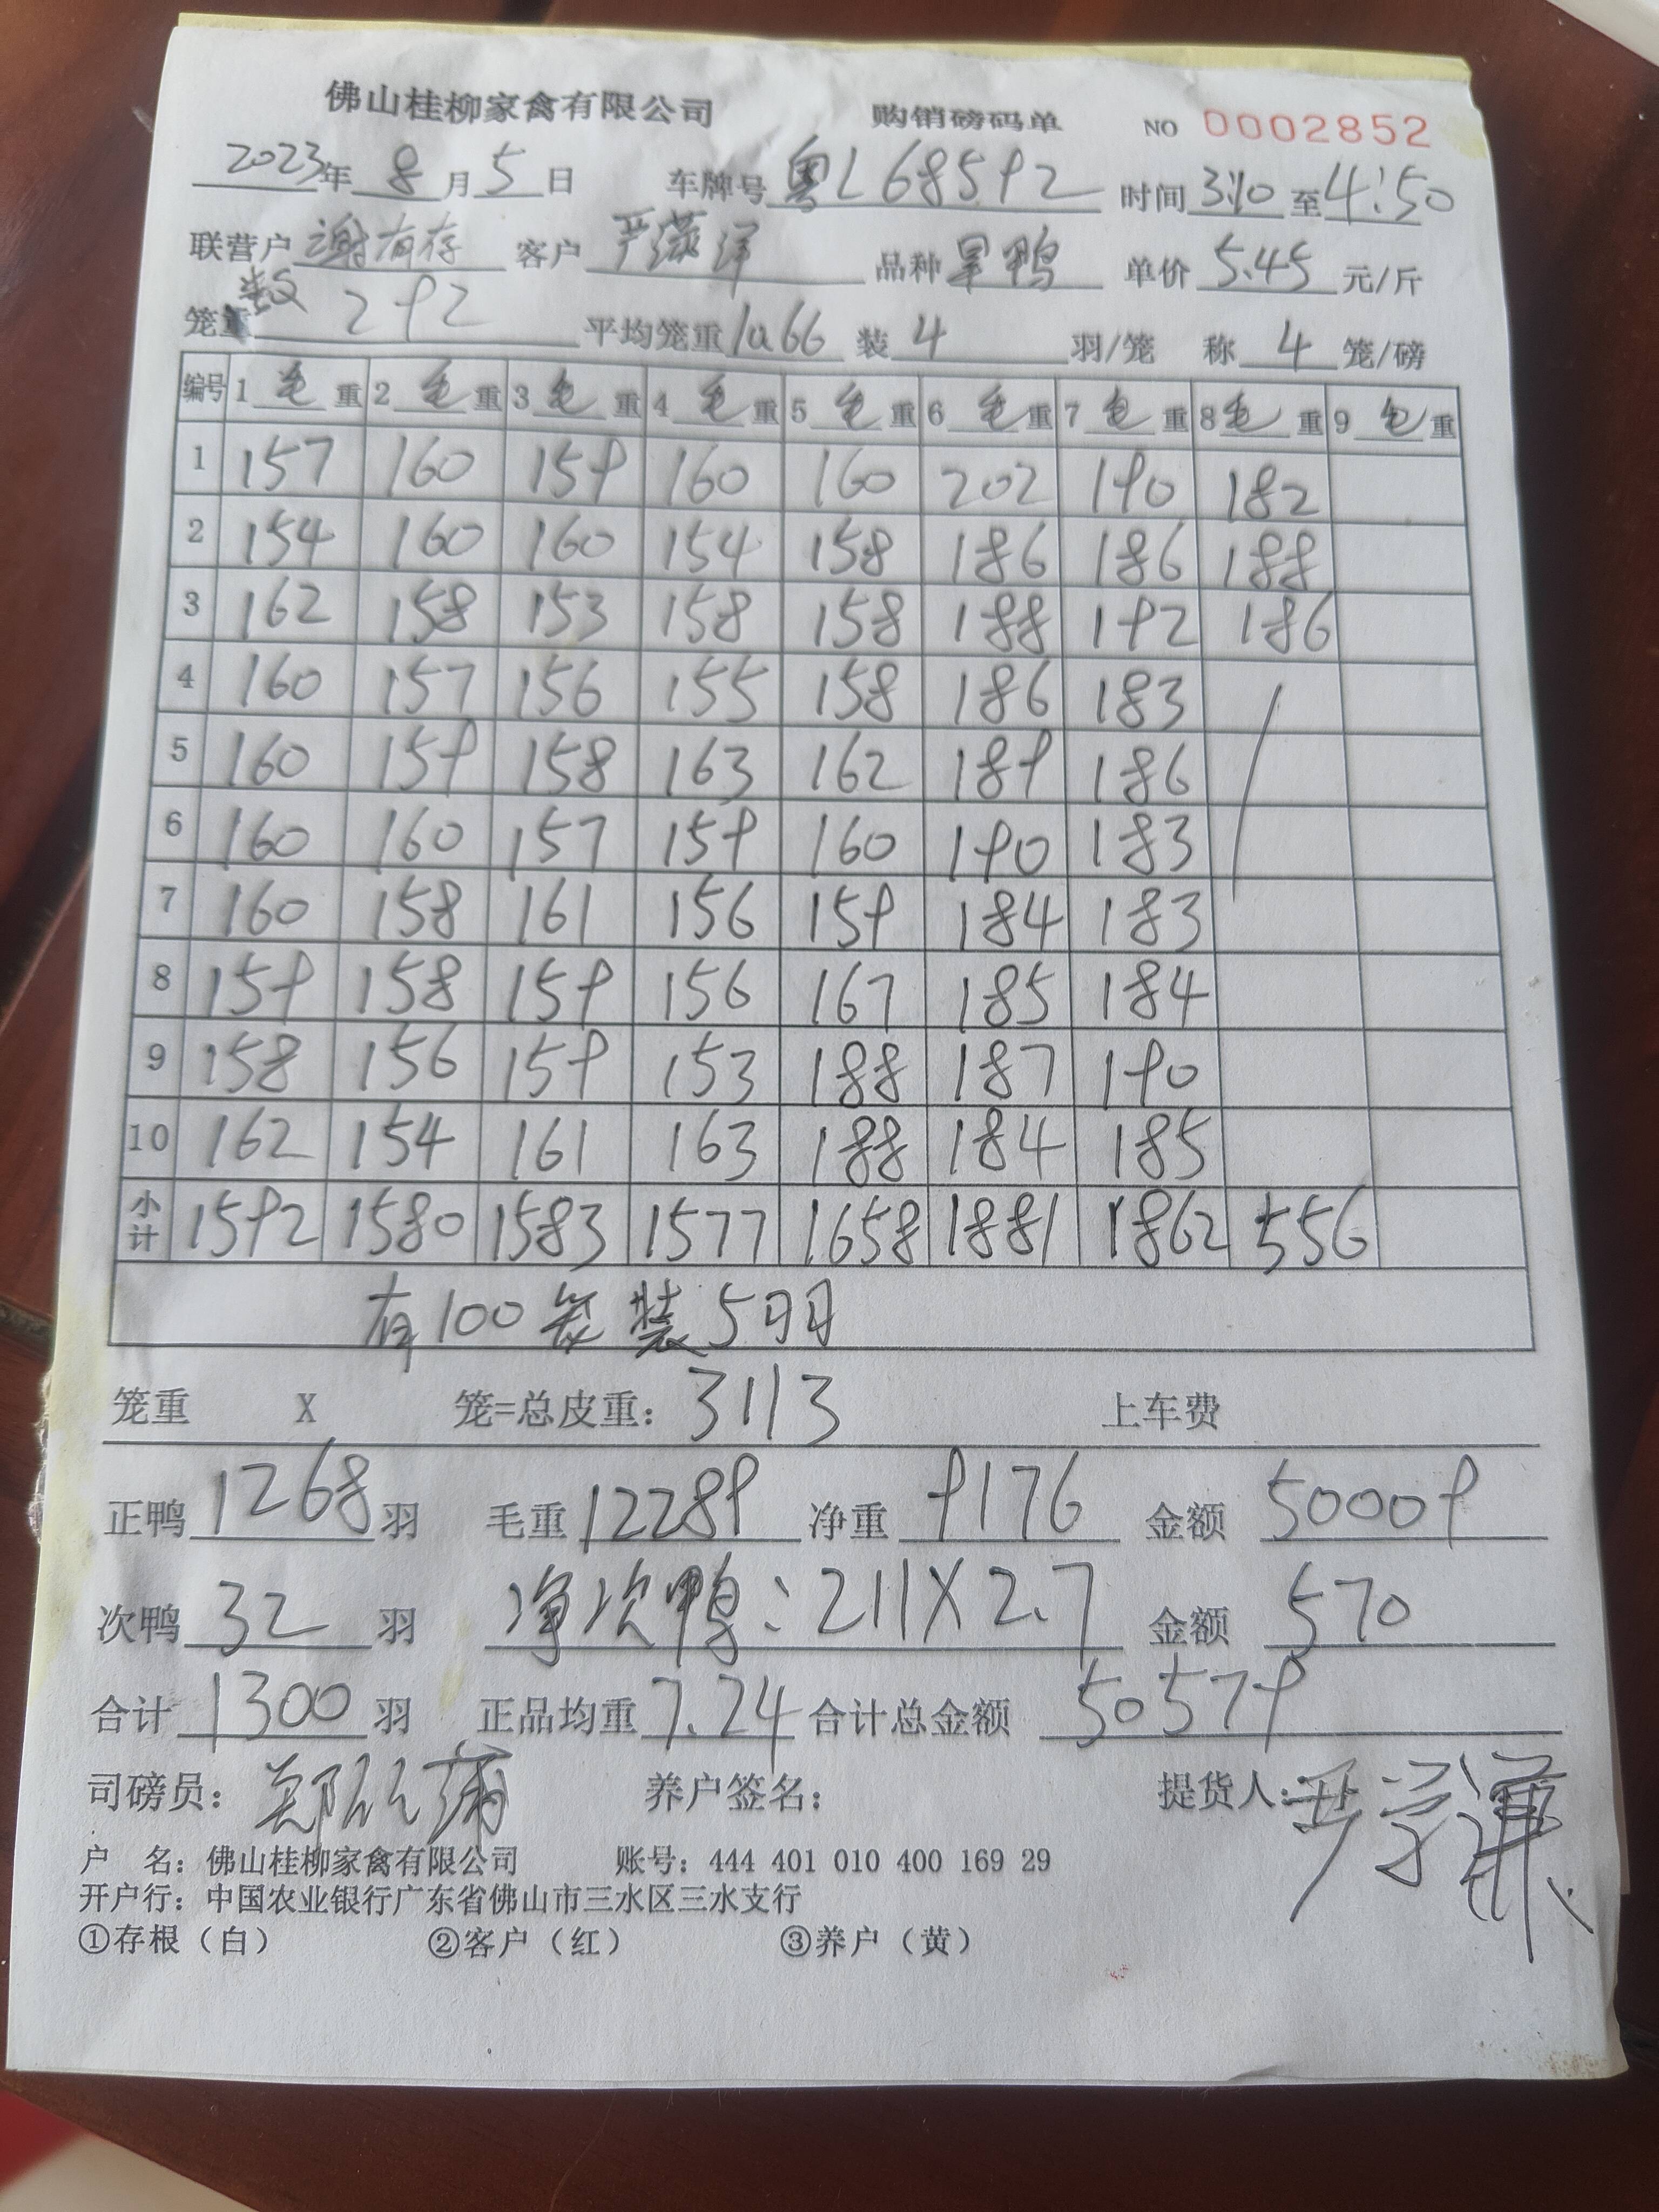 佛山桂柳家禽有限公司 购销磅码单 NO 0002852
2023年 8 月 5 日 车牌号 粤L68592 时间 3:10 至 4:50
联营户 谢有存 客户 严 品种 旱鸭 单价 5.45 元/斤
笼数 292 平均笼重 10.66 装 4 羽/笼 称 4 笼/磅
编号 1 毛 重 2 毛 重 3 毛 重 4 毛 重 5 毛 重 6 毛 重 7 毛 重 8 毛 重 9 毛 重
1 157 160 159 160 160 202 190 182
2 154 160 160 154 158 186 186 188
3 162 158 153 158 158 188 192 186
4 160 157 156 155 158 186 183
5 160 159 158 163 162 189 186
6 160 160 157 159 160 190 183
7 160 158 161 156 159 184 183
8 159 158 159 156 167 185 184
9 158 156 159 153 188 187 190
10 162 154 161 163 188 184 185
小计 1592 1580 1583 1577 1658 1881 1862 556
有100笼装5羽
笼重 X 笼=总皮重: 3113 上车费
正鸭 1268 羽 毛重 12289 净重 9176 金额 50009
次鸭 32 羽 净次鸭: 211X2.7 金额 570
合计 1300 羽 正品均重 7.24 合计总金额 50579
司磅员: 郑 养户签名: 提货人: 严学谦
户 名: 佛山桂柳家禽有限公司 账号: 444 401 010 400 169 29
开户行: 中国农业银行广东省佛山市三水区三水支行
①存根(白) ②客户(红) ③养户(黄)